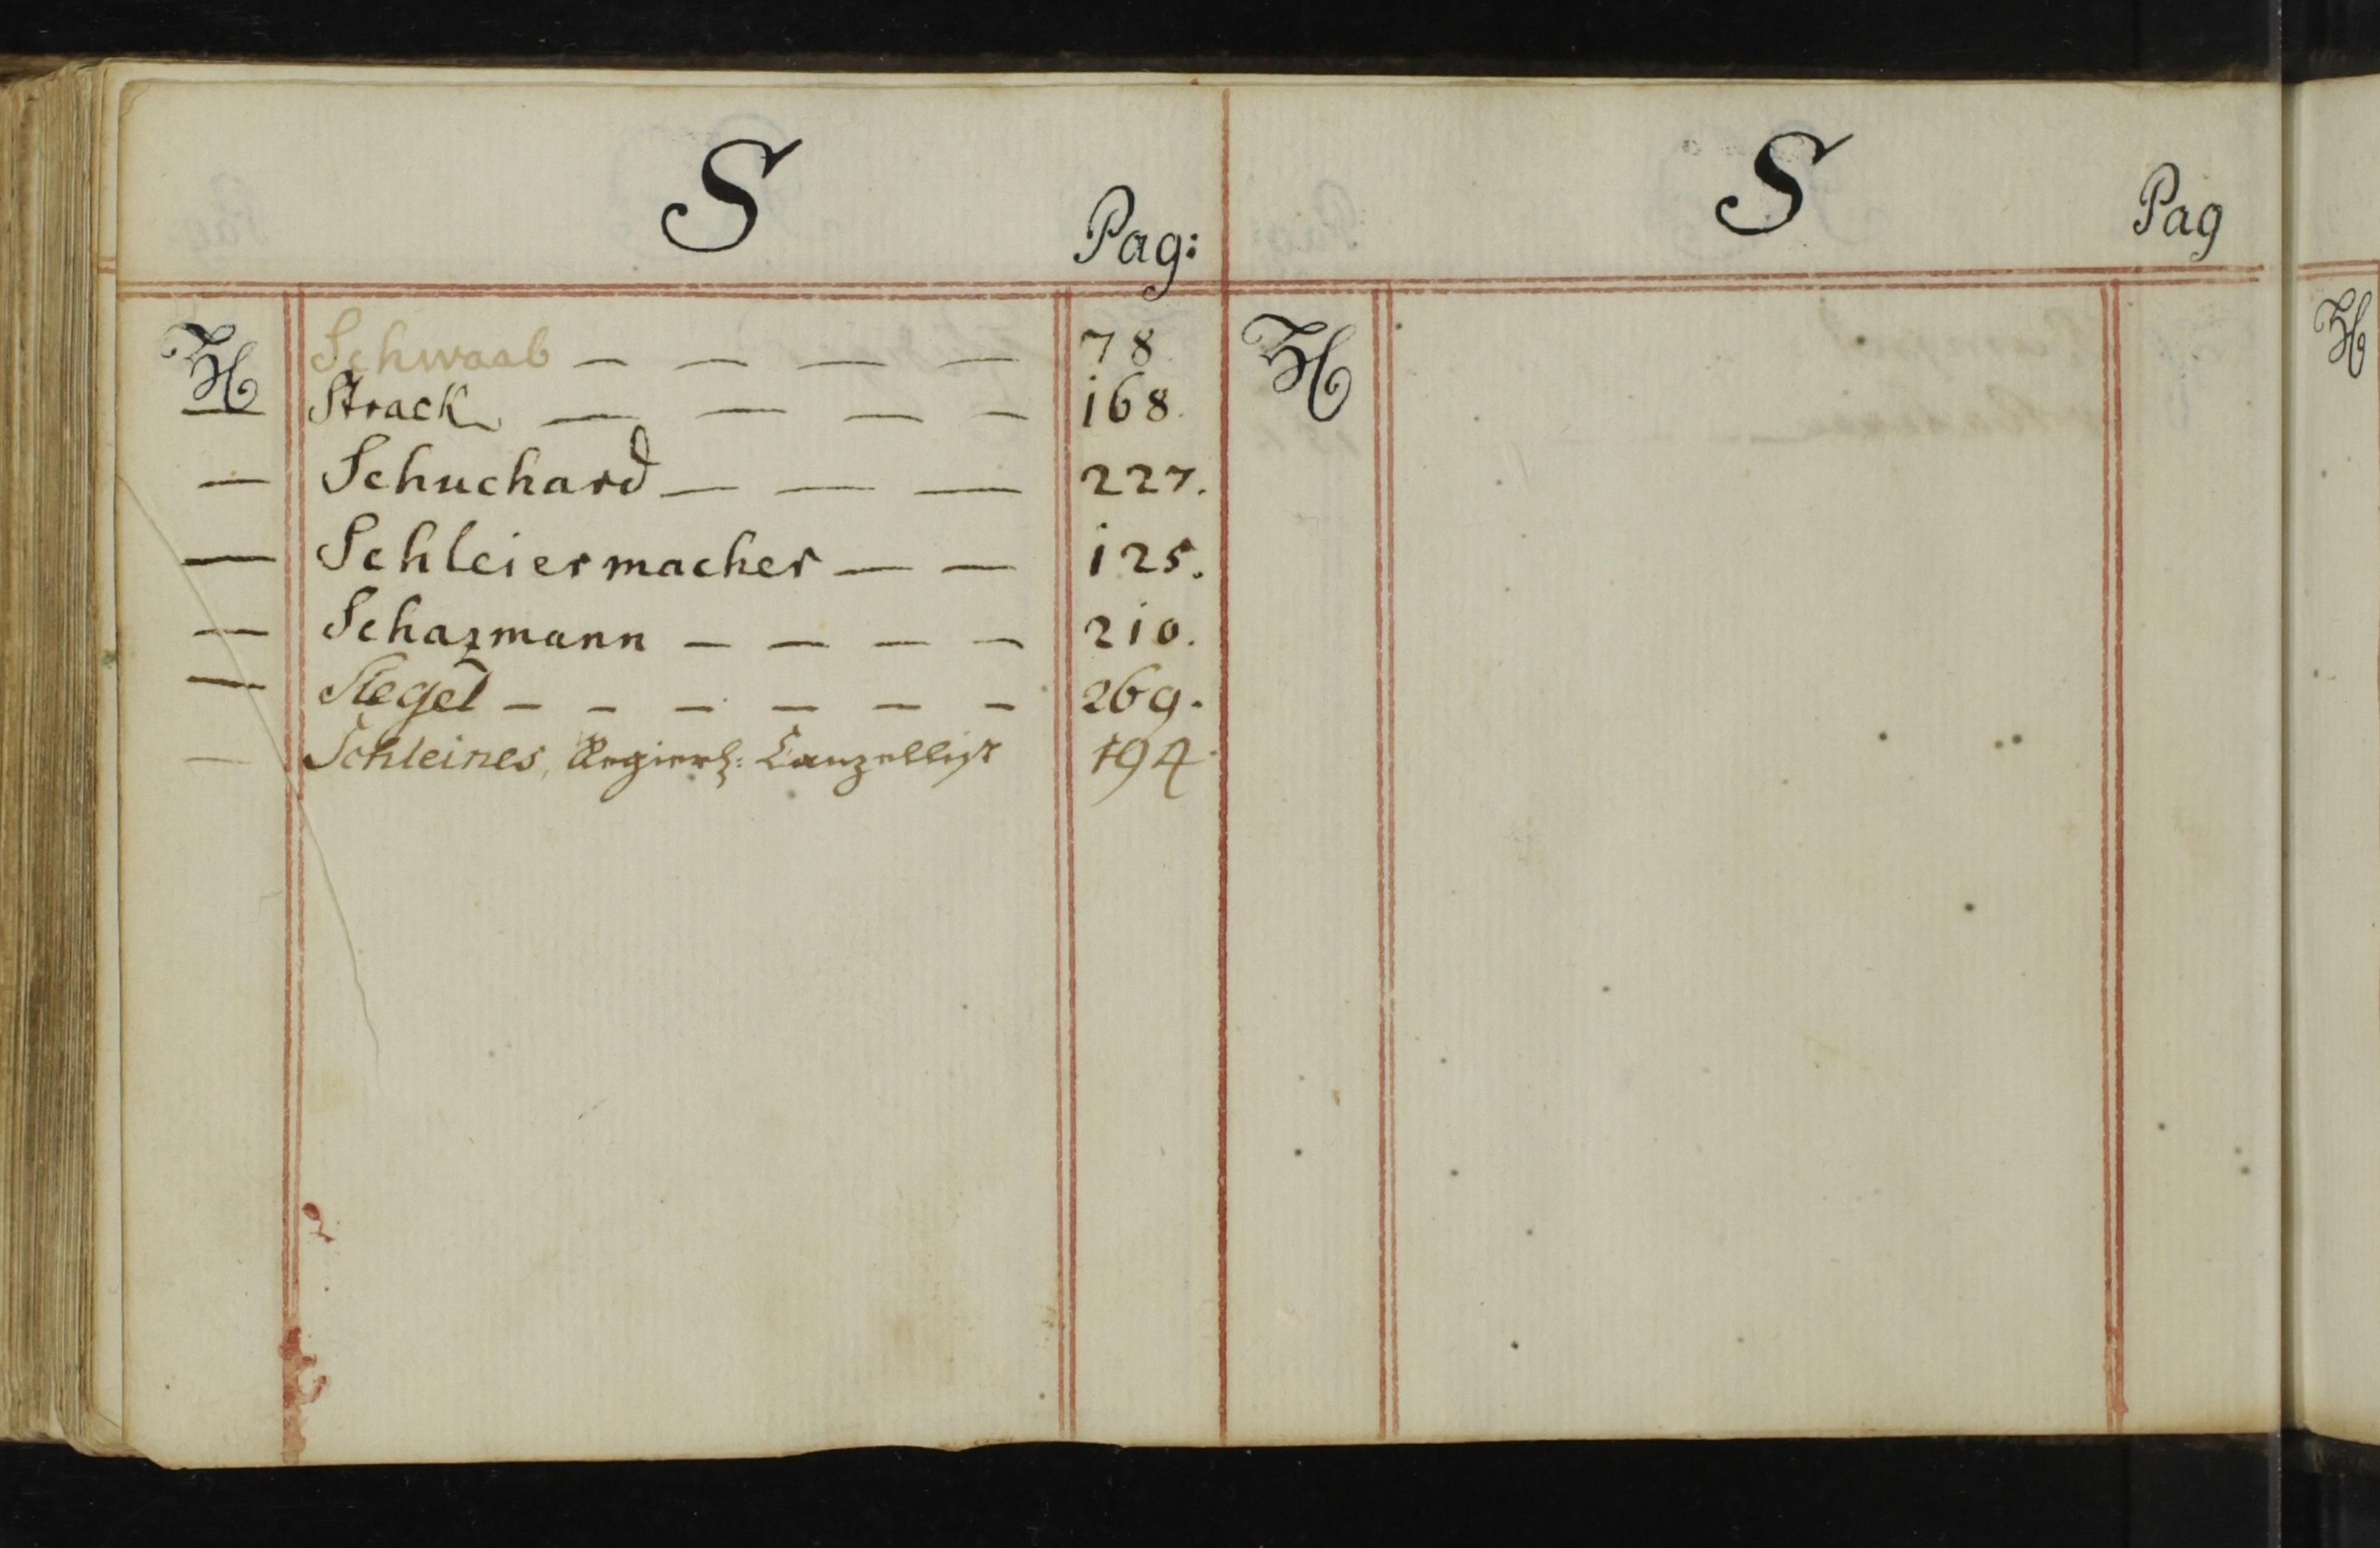 S
Pag:
H Schwaab — — — — 78
— Strack — — — — 168.
— Schuchard — — — 227.
— Schleiermacher — — 125.
— Schazmann — — — — 210.
— Siegel — — — — — — 269.
— Schleines, Regier: Canzellist 194.
S
Pag
H
H